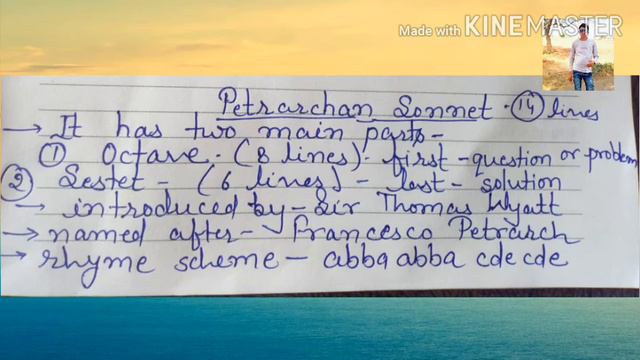 Made with KINEMASTER
Petrarchan Sonnet - 14 lines
→ It has two main parts -
① Octave - (8 lines) - first - question or problem
② Sestet - (6 lines) - last - solution
→ introduced by - Sir Thomas Wyatt
→ named after - Francesco Petrarch
→ rhyme scheme - abba abba cde cde